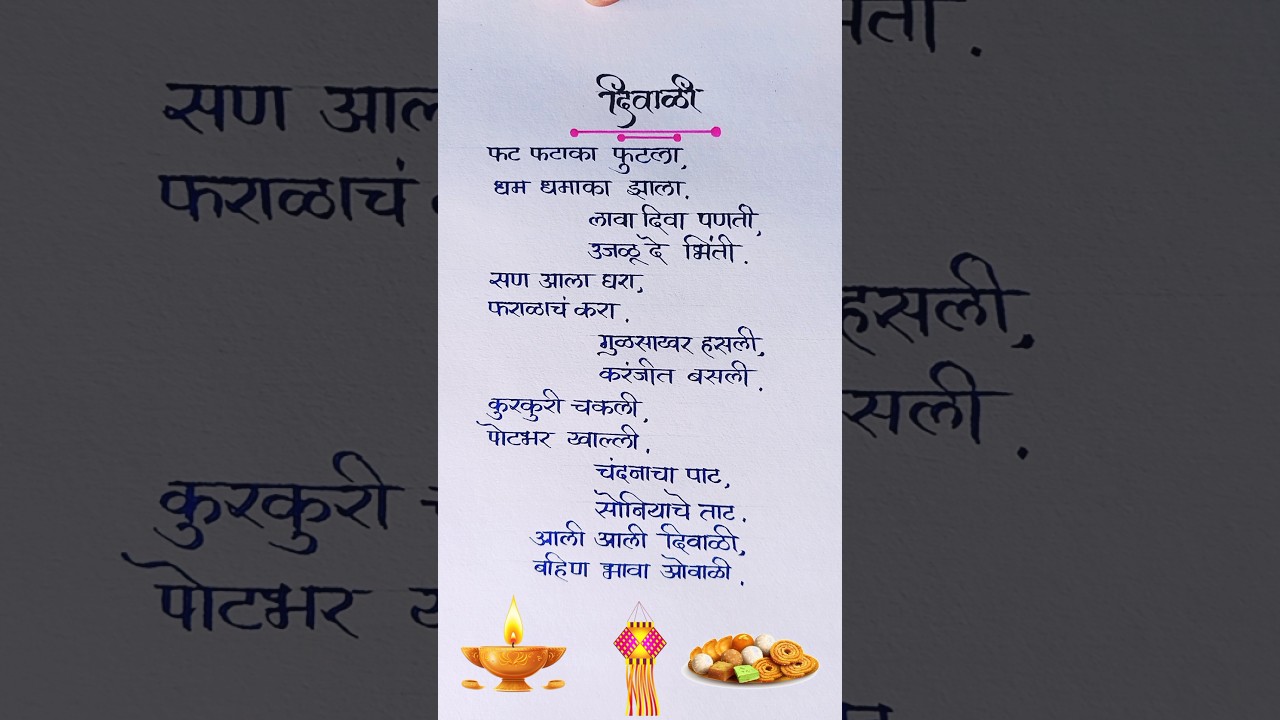 दिवाळी
फट फटाका फुटला,
धम धमाका झाला.
लावा दिवा पणती,
उजळू दे भिंती.
सण आला घरा,
फराळाचं करा.
गुळसाखर हसली,
करंजीत बसली.
कुरकुरी चकली,
पोटभर खाल्ली.
चंदनाचा पाट,
सोनियाचे ताट.
आली आली दिवाळी,
बहिण भावा ओवाळी.